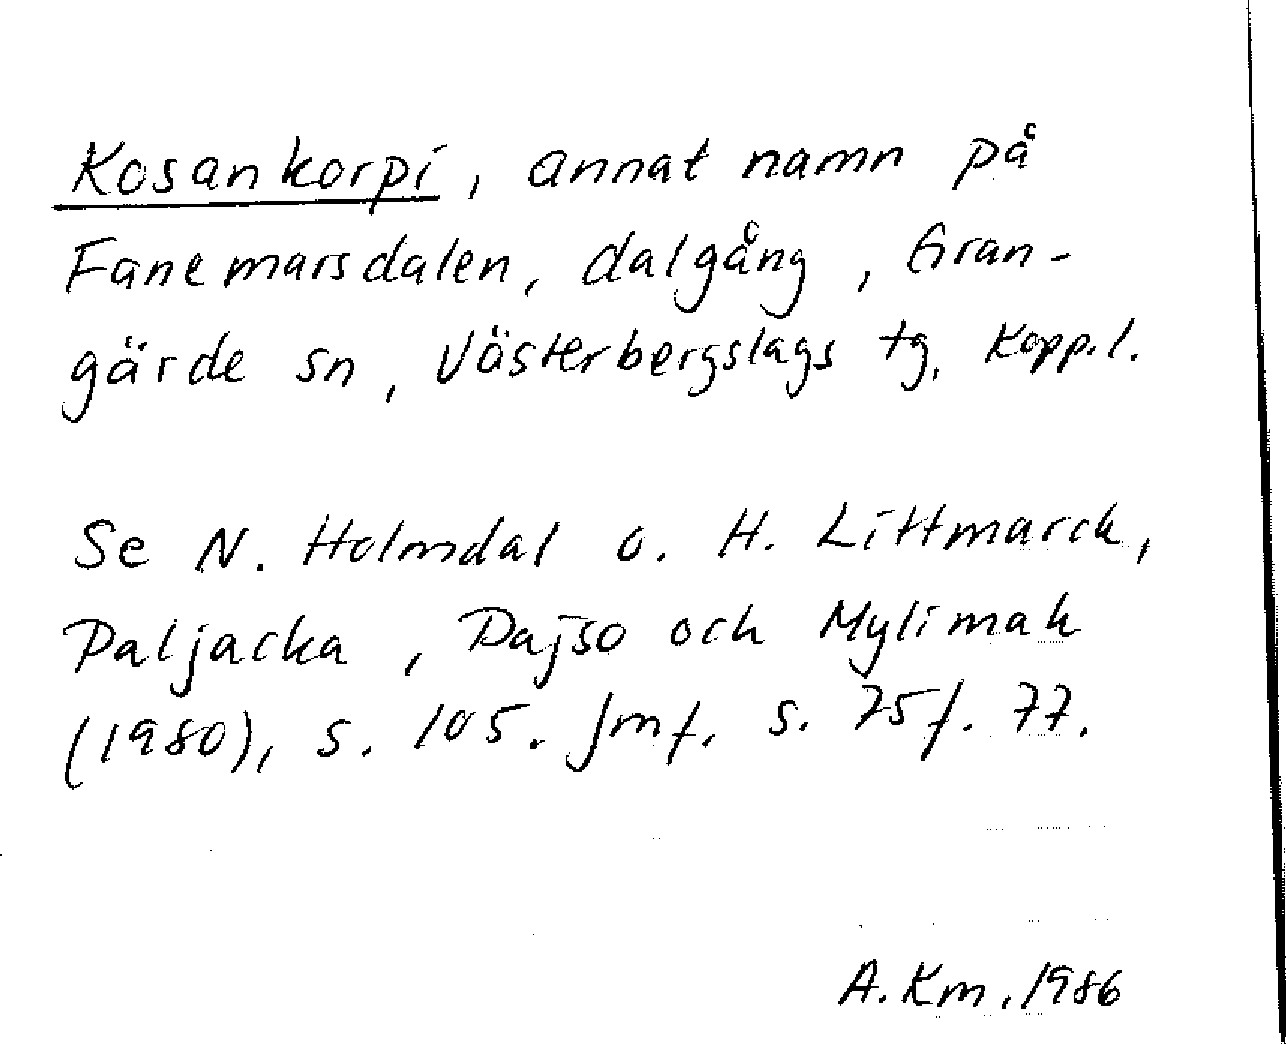 Kosankorpi, annat namn på
Fanemarsdalen, dalgång, Gran-
gärde sn, Västerbergslags tg, Kopp.l.
Se N. Holmdal o. H. Littmarck,
Paljacka, Pajso och Mylimak
(1980), s. 105. Jmf. s. 75f. 77.
A. Km. 1986